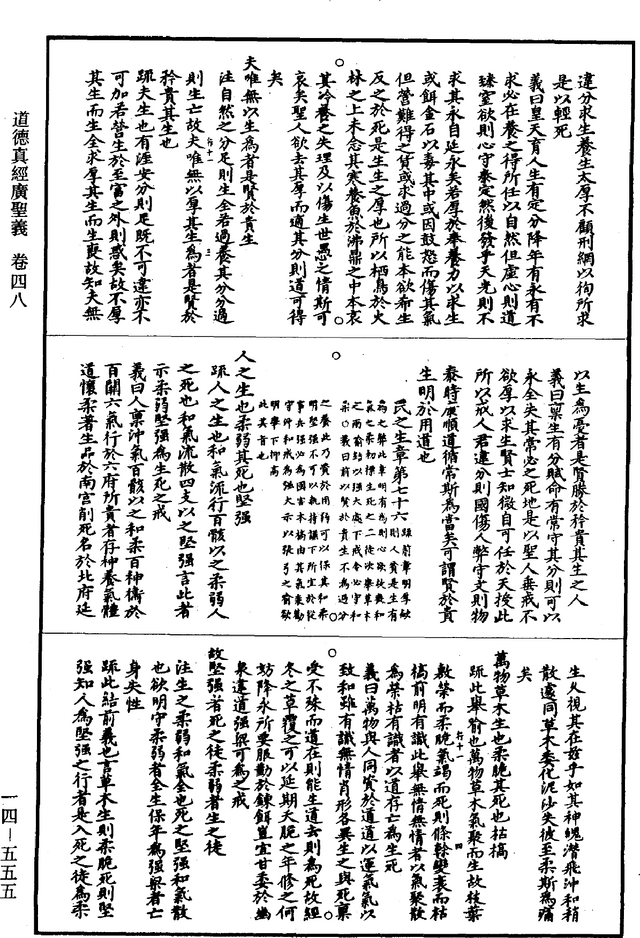 道德真經廣聖義　卷四八
一四—五五五
違分求生養生太厚不顧刑網以徇所求
是以輕死
義曰皇天育人生有定分降年有永有不
求必在養之得所任以自然但虛心則道
臻室欲則心守泰定然後發乎天光則不
求其永自延永矣若厚於奉養力以求生
或餌金石以毒其中或因鼓怒而傷其氣
但營難得之貨或求過分之能本欲希生
反之於死是生生之厚也所以栖鳥於火
林之上未念其寒養魚於沸鼎之中本哀
其冷養之失理及以傷生世愚之情斯可
哀矣聖人欲去其厚而適其分則道可得
矣
夫唯無以生為者是賢於貴生
注自然之分足則生全若過養其分分過
則生亡故夫唯無以厚其生為者是賢於
矜貴其生也
疏夫生也有涯安分則足既不可違亦不
可加若營生於至富之外則惑矣故不厚
其生而生全求厚其生而生喪故知夫無
以生為憂者是賢勝於矜貴其生之人
義曰稟生有分賦命有常守其分則可以
永全失其常必之死地是以聖人垂戒不
欲厚以求生賢士知微自可任於天授此
所以戒人君違分則國傷人弊守文則物
泰時康順道循常斯為當矣可謂賢於貴
生明於用道也
民之生章第七十六
人之生也柔弱其死也堅強
疏人之生也和氣流行百骸以之柔弱人
之死也和氣流散四支以之堅強言此者
示柔弱堅強為生死之戒
義曰人稟沖氣百骸以之和柔百神衛於
百關六氣行於六府所貴者存神養氣體
道懷柔著生命於南宮削死名於北府延
生久視其在茲乎如其神魄潛飛沖和稍
散遽同草木委化泥沙失彼至柔斯為痛
矣
萬物草木生也柔脆其死也枯槁
疏此舉喻也萬物草木氣聚而生故枝葉
敷榮而柔脆氣竭而死則條幹變衰而枯
槁前明有識此舉無情無情者以氣聚散
為榮枯有識者以道存亡為生死
義曰萬物與人同資於道道以運氣氣以
致和雖有識無情肖形各異生之與死稟
受不殊而道在則能生道去則為死故經
冬之草覆之可以延期夭脆之年修之何
妨降永所要服勤於鍊餌豈宜甘委於幽
泉違道強梁可為之戒
故堅強者死之徒柔弱者生之徒
注生之柔弱和氣全也死之堅強和氣散
也欲明守柔弱者全生保年為強梁者亡
身失性
疏此結前義也言草木生則柔脆死則堅
強知人為堅強之行者是入死之徒為柔